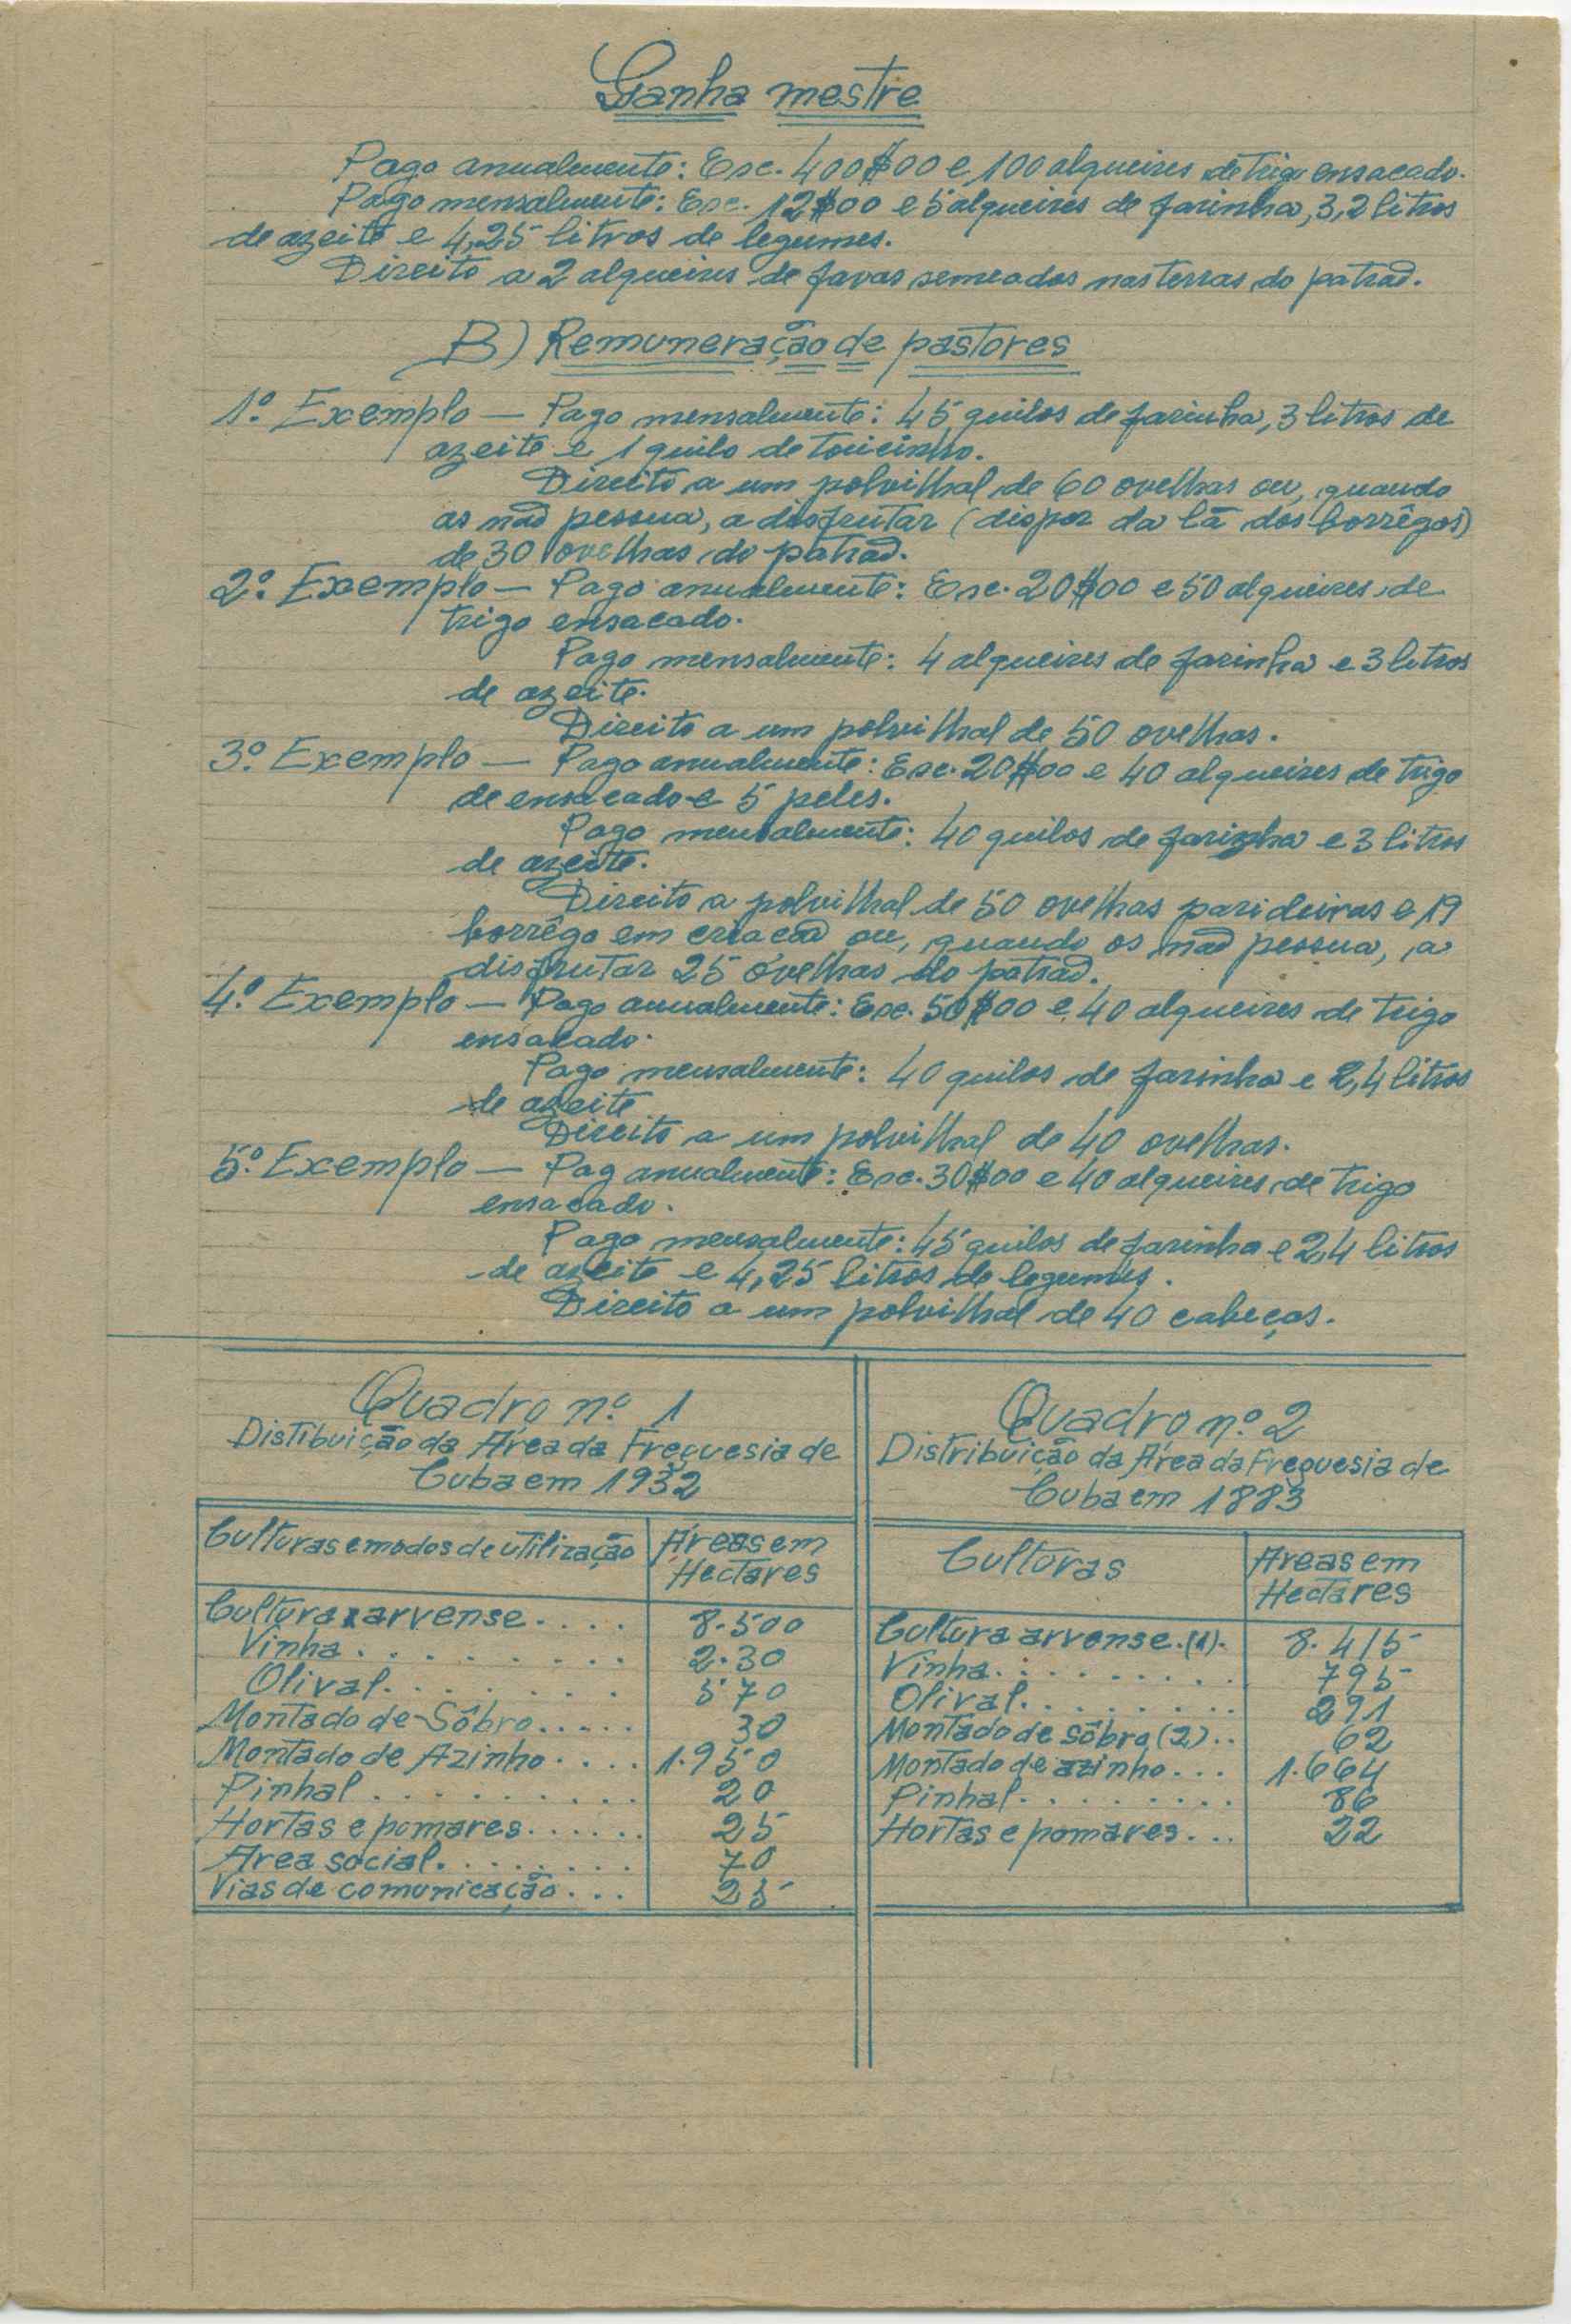 Ganha mestre
Pago anualmente: Esc. 400$00 e 100 alqueires de trigo ensacado.
Pago mensalmente: Esc. 12$00 e 5 alqueires de farinha, 3,2 litros
de azeite e 4,25 litros de legumes.
Direito a 2 alqueires de favas semeados nas terras do patraõ.
B) Remuneração de pastores
1º. Exemplo — Pago mensalmente: 45 quilos de farinha, 3 litros de
azeite e 1 quilo de toucinho.
Direito a um polvilhal de 60 ovelhas ou, quando
as naõ possua, a disfrutar (dispor da lã dos borrêgos)
de 30 ovelhas do patraõ.
2º. Exemplo — Pago anualmente: Esc. 20$00 e 50 alqueires de
trigo ensacado.
Pago mensalmente: 4 alqueires de farinha e 3 litros
de azeite.
Direito a um polvilhal de 50 ovelhas.
3º. Exemplo — Pago anualmente: Esc. 20$00 e 40 alqueires de trigo
de ensacado e 5 peles.
Pago mensalmente: 40 quilos de farinha e 3 litros
de azeite.
Direito a polvilhal de 50 ovelhas parideiras e 19
borrêgo em criacaõ ou, quando os naõ possua, a
disfrutar 25 ovelhas do patraõ.
4º. Exemplo — Pago anualmente: Esc. 50$00 e 40 alqueires de trigo
ensacado.
Pago mensalmente: 40 quilos de farinha e 2,4 litros
de azeite
Direito a um polvilhal de 40 ovelhas.
5º. Exemplo — Pag anualmente: Esc. 30$00 e 40 alqueires de trigo
ensacado.
Pago mensalmente: 45 quilos de farinha e 2,4 litros
de azeite e 4,25 litros de legumes.
Direito a um polvilhal de 40 cabeças.
Quadro nº. 1
Distibuição da Área da Freguesia de
Cuba em 1932
Culturas e modos de utilização Áreas em
Hectares
Cultura arvense.... 8.500
Vinha......... 2.30
Olival........ 570
Montado de Sôbro..... 30
Montado de Azinho.... 1.950
Pinhal.......... 20
Hortas e pomares...... 25
Area social........ 70
Vias de comunicação... 25
Quadro nº. 2
Distribuição da Área da Freguesia de
Cuba em 1883
Culturas Areas em
Hectares
Cultura arvense.(1). 8.415
Vinha......... 795
Olival........ 291
Montado de Sôbro (2).. 62
Montado de azinho... 1.664
Pinhal........ 86
Hortas e pomares... 22